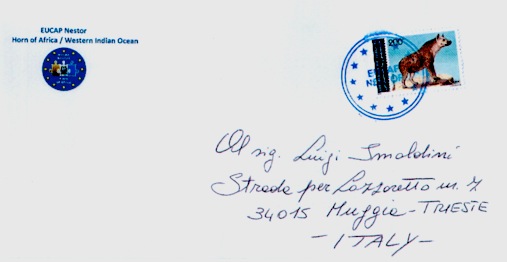 EUCAP Nestor
Horn of Africa / Western Indian Ocean
200
EUCAP
NESTOR
Al sig. Luigi Smoldini
Strada per Lazzaretto n. 7
34015 Muggia - TRIESTE
- ITALY -